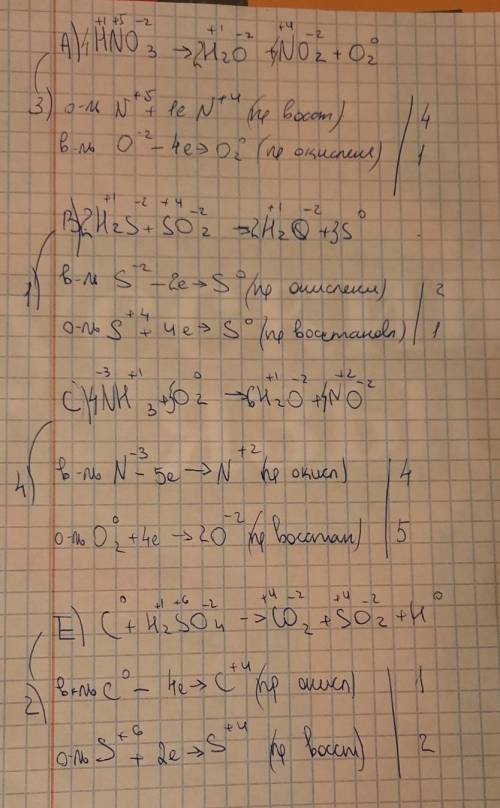 A) 4HNO3 → 2H2O + 4NO2 + O2
3) о-ль N+5 + 1e N+4 (пр восст) | 4
в-ль O-2 - 4e → O2 0 (пр окисления) | 1
B) 2H2S + SO2 → 2H2O + 3S0
1) в-ль S-2 - 2e → S0 (пр окисления) | 2
о-ль S+4 + 4e → S0 (пр восстановл) | 1
C) 4NH3 + 5O2 → 6H2O + 4NO
4) в-ль N-3 - 5e → N+2 (пр окисл) | 4
о-ль O2 0 + 4e → 2O-2 (пр восстан) | 5
E) C + H2SO4 → CO2 + SO2 + H0
2) в-ль C0 - 4e → C+4 (пр окисл) | 1
о-ль S+6 + 2e → S+4 (пр восст) | 2